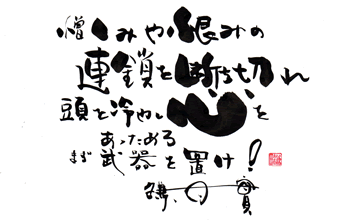 憎しみや恨みの
連鎖を断ち切れ
頭を冷やし心を
あっためろ
まず武器を置け!